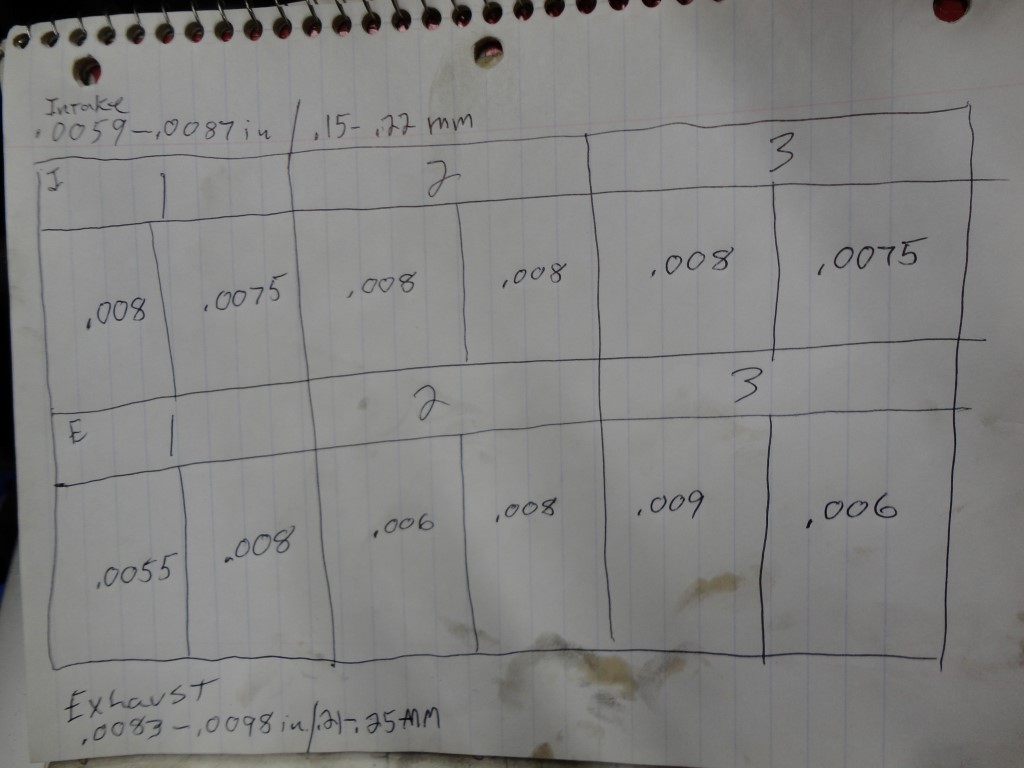 Intake
.0059-.0087 in / .15-.22 mm
I 1 2 3
.008 .0075 .008 .008 .008 .0075
E 1 2 3
.0055 .008 .006 .008 .009 .006
Exhaust
.0083-.0098 in/.21-.25 MM